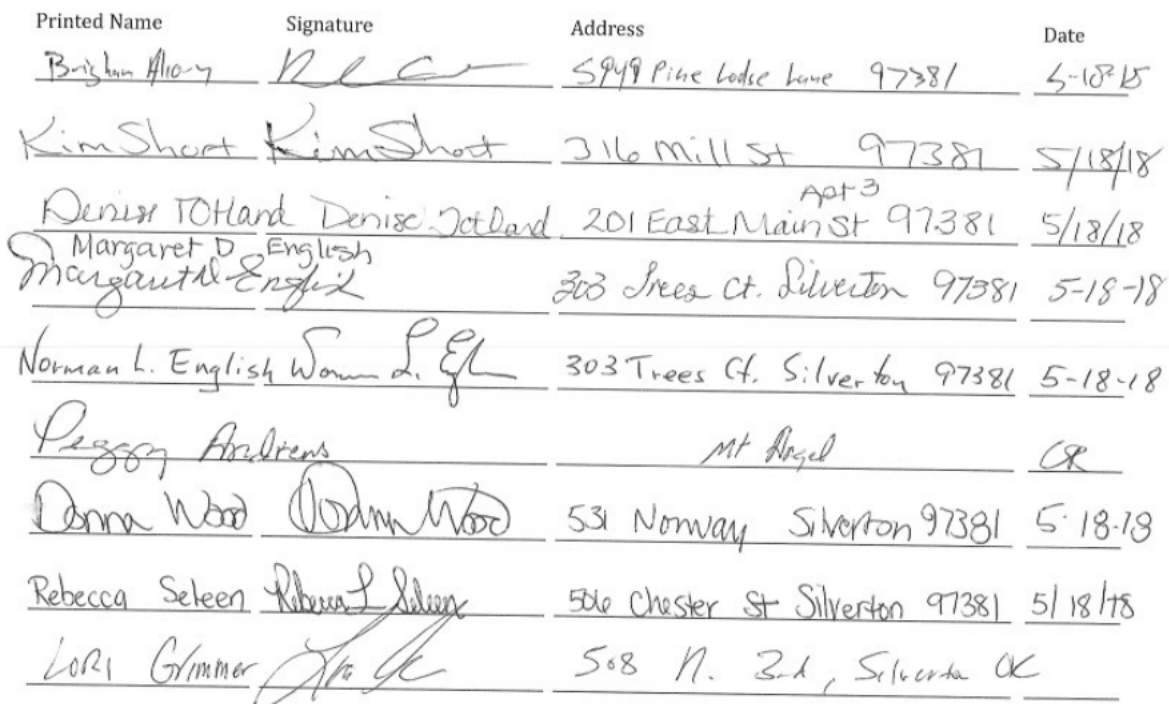 Printed Name Signature Address Date
5949 Pine Lodge Lane 97381
Kim Short Kim Short 316 Mill St 97381 5/18/18
Apt 3
Denise Totland Denise Totland 201 East Main St 97381 5/18/18
Margaret D English
Margaret D English 303 Trees Ct. Silverton 97381 5-18-18
Norman L. English 303 Trees Ct. Silverton 97381 5-18-18
Peggy Andrews Mt Angel OR
Donna Wood Donna Wood 531 Norway Silverton 97381 5-18-18
Rebecca Seleen Rebecca L Seleen 506 Chester St Silverton 97381 5/18/18
LORI Grimmer 508 N. 3rd, Silverton OR